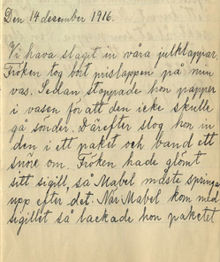 Den 14 desember 1916.
Vi hava slagit in våra julklappar.
Fröken tog bort prislappen på min
vas. Sedan stoppade hon papper
i vasen för att den icke skulle
gå sönder. Därefter slog hon in
den i ett paket och band ett
snöre om. Fröken hade glömt
sitt sigill, så Mabel måste springa
upp efter det. När Mabel kom med
sigillet så lackade hon paketet